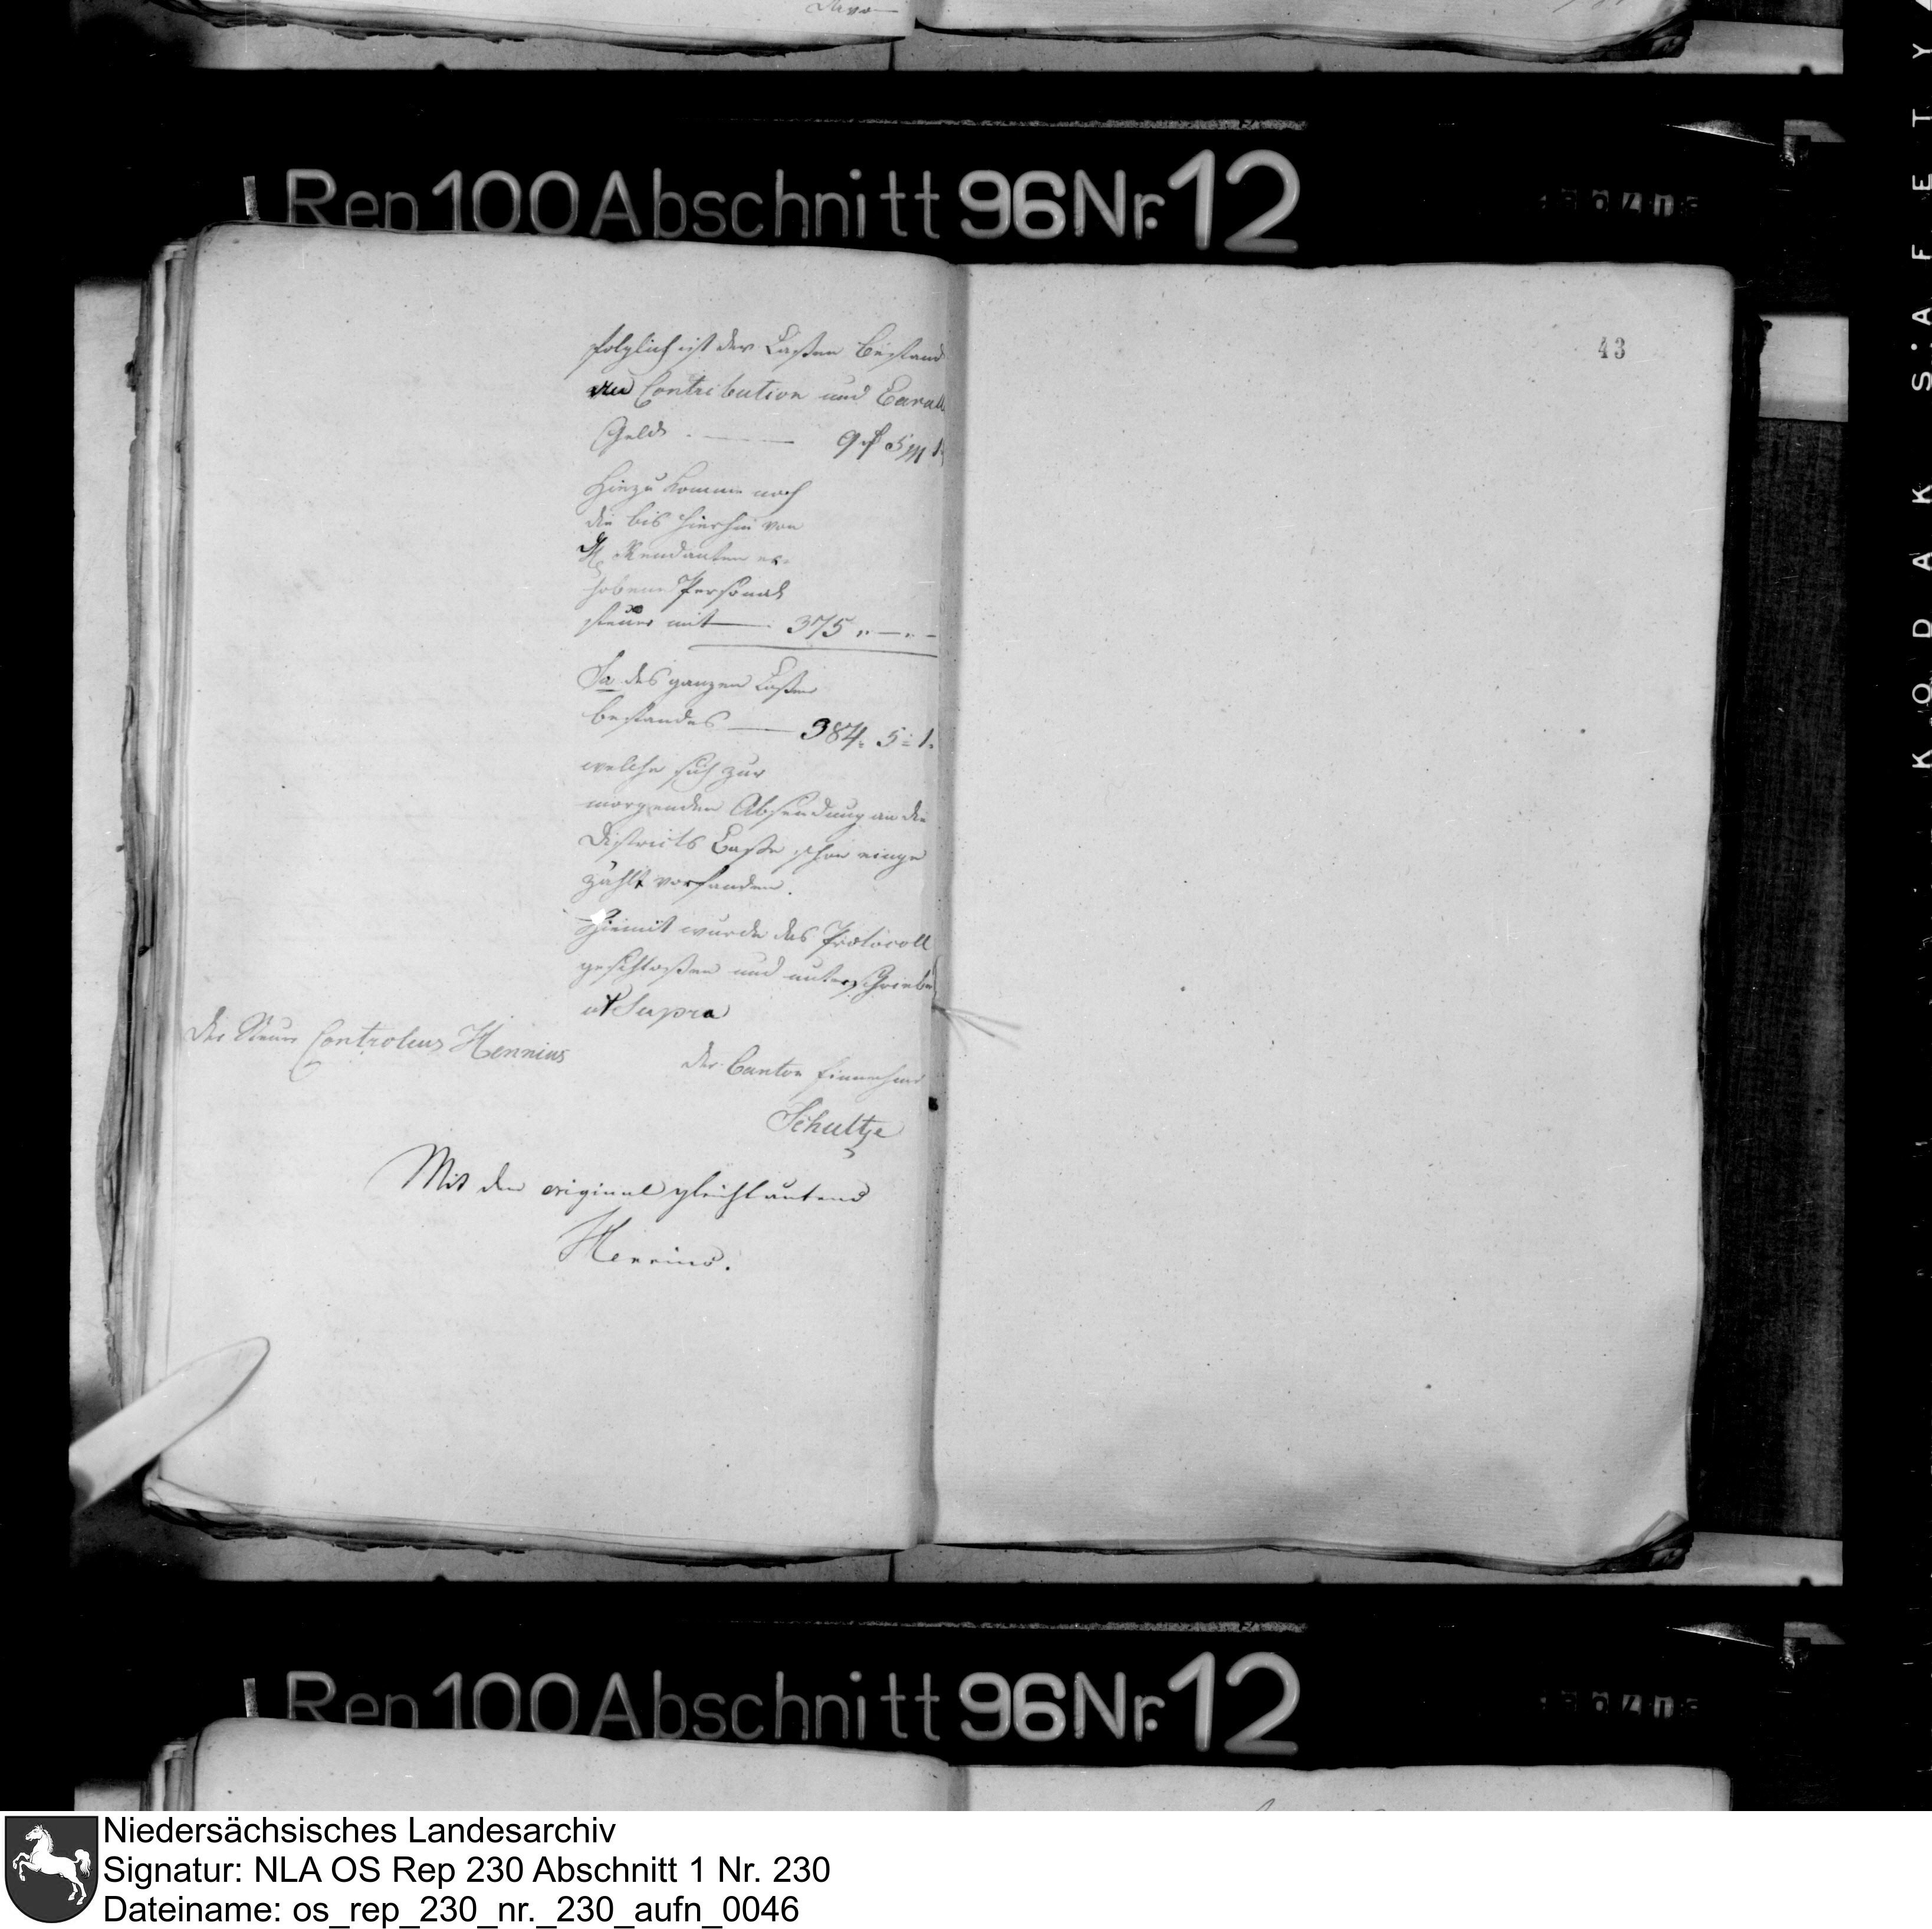 Rep 100 Abschnitt 96 Nr. 12
43
folglich ist der Cassen Bestand
an Contribution und Caval
Geld . — 9 rf 5 m 1
Hiezu komme noch
die bis hierhin von
H. Rendanten er-
hobene Personal
steuer mit — 375 " — " —
Sa des ganzen Cassen
bestandes — 384 : 5 : 1.
welche sich zur
morgenden Absendung an die
Districts Casse schon einge
zählt vorfanden.
Hiemit wurde das Protocoll
geschlossen und unterschrieben
ut Supra
Der Steuer Controleur Hennius
Der Canton Einnehmer
Schultze
Mit dem original gleichlautend
Hennius.
Rep 100 Abschnitt 96 Nr. 12
KODAK SAFETY
Niedersächsisches Landesarchiv
Signatur: NLA OS Rep 230 Abschnitt 1 Nr. 230
Dateiname: os_rep_230_nr._230_aufn_0046